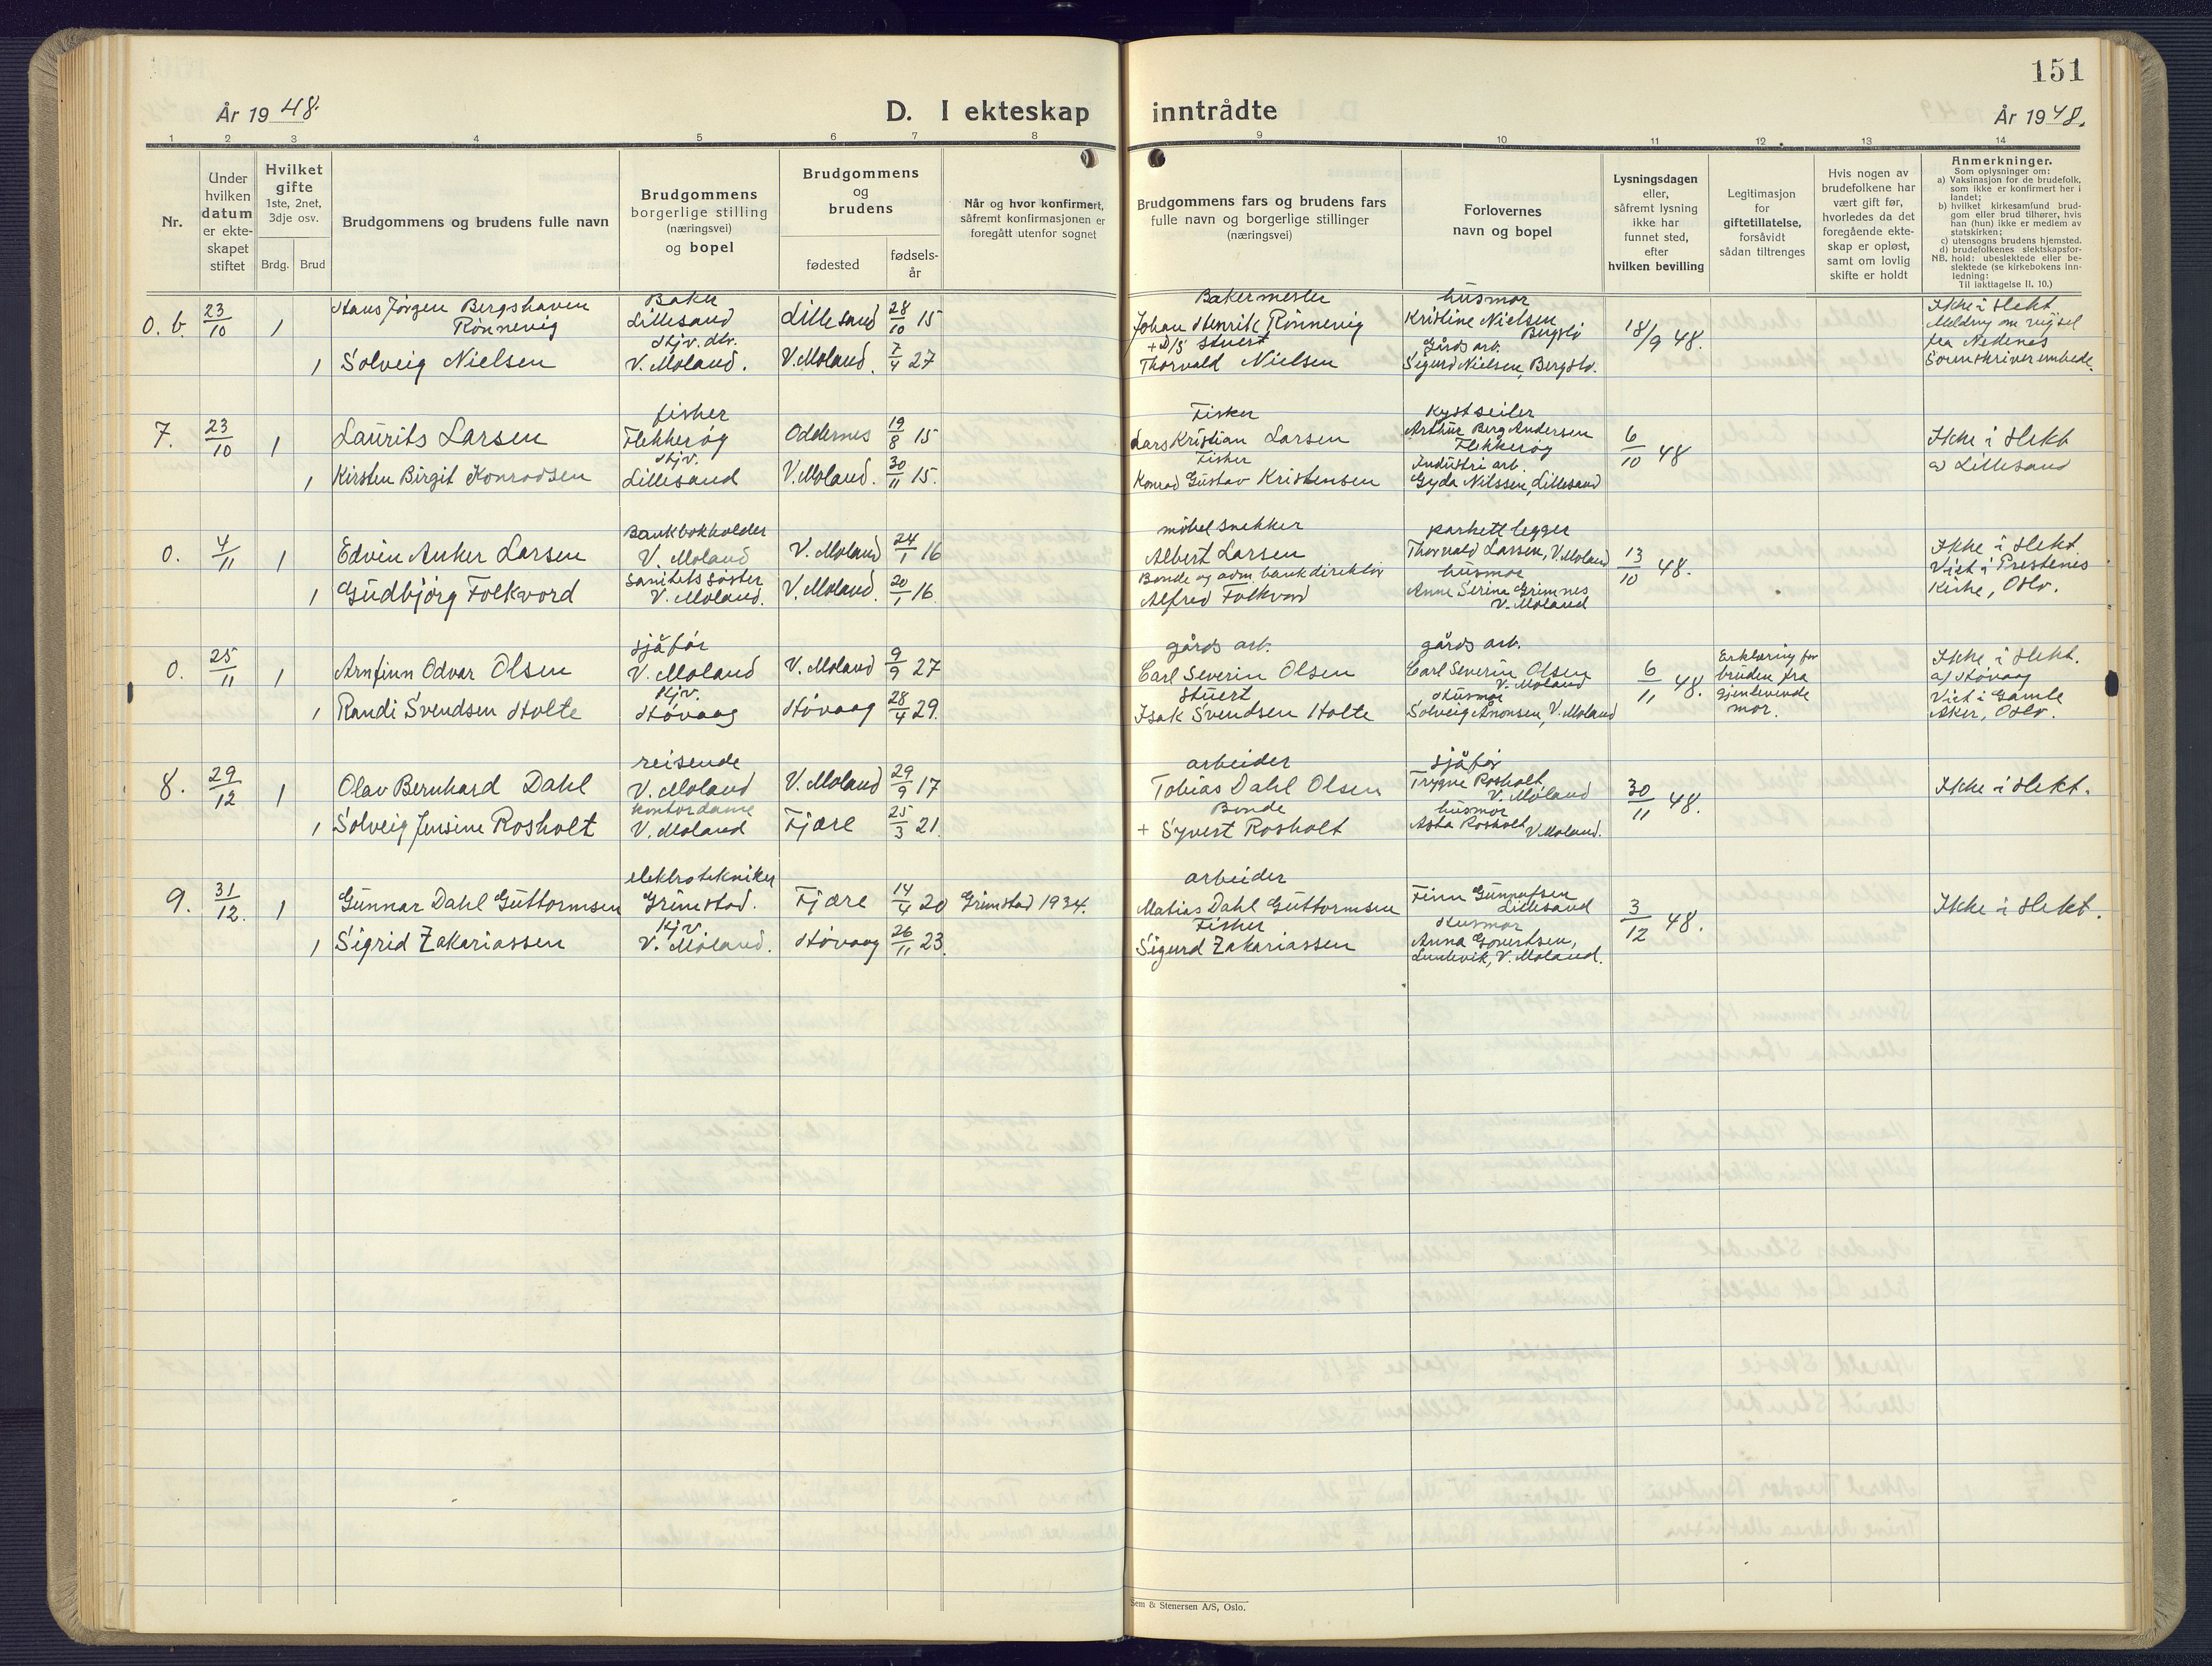 151
År 1948.
D. I ekteskap inntrådte
År 1948.
1 2 3 4 5 6 7 8 9 10 11 12 13 14
Nr.
Under hvilken datum er ekteskapet stiftet
Hvilket gifte 1ste, 2net, 3dje osv.
Brdg. Brud
Brudgommens og brudens fulle navn
Brudgommens borgerlige stilling (næringsvei) og bopel
Brudgommens og brudens
fødested
fødsels-år
Når og hvor konfirmert, såfremt konfirmasjonen er foregått utenfor sognet
Brudgommens fars og brudens fars fulle navn og borgerlige stillinger (næringsvei)
Forlovernes navn og bopel
Lysningsdagen eller, såfremt lysning ikke har funnet sted, efter hvilken bevilling
Legitimasjon for giftetillatelse, forsåvidt sådan tiltrenges
Hvis nogen av brudefolkene har vært gift før, hvorledes da det foregående ekteskap er opløst, samt om lovlig skifte er holdt
Anmerkninger.
Som oplysninger om:
a) Vaksinasjon for de brudefolk, som ikke er konfirmert her i landet;
b) hvilket kirkesamfund brudgom eller brud tilhører, hvis han (hun) ikke er medlem av statskirken;
c) utensogns brudens hjemsted.
d) brudefolkenes slektskapsforhold: ubeslektede eller beslektede (se kirkebokens innledning:
NB. Til iakttagelse II. 10.)
0. b 23/10 1 Hans Jørgen Bergshaven Rønnevig Baker Lillesand Lillesand 28/10 15 Bakermester Johan Henrik Rønnevig husmor Kristine Nielsen Bergstø 18/9 48. Ikke i slekt
Meldng om vigsel fra Nedenes Sorenskriverembede.
1 Solveig Nielsen Hjv. dtr. V. Moland. V. Moland. 7/4 27 + D/S Stuert Thorvald Nielsen Gårds arb. Sigurd Nielsen, Bergstø.
7. 23/10 1 Laurits Larsen fisker Flekkerøy Oddernes 19/8 15 Fisker Lars Kristian Larsen Kystseiler Arthur Berg Andersen Flekkerøy 6/10 48 Ikke i slekt
a) Lillesand
1 Kirsten Birgit Konradsen Hjv. Lillesand V. Moland. 30/11 15. Fisker Konrad Gustav Kristensen Industri arb. Gyda Nilssen, Lillesand
0. 4/11 1 Edvin Anker Larsen Bankbokholder V. Moland V. Moland 24/1 16 møbelsnekker Albert Larsen parkettlegger Thorvald Larsen, V. Moland 13/10 48. Ikke i slekt.
Viet i Prestenes Kirke, Oslo.
1 Gudbjörg Folkvord Sanitetssøster V. Moland. V. Moland. 20/1 16. Bonde og adm. bankdirektør Alfred Folkvord husmor Anne Serine Grimnes V. Moland
0. 25/11 1 Arnfinn Odvar Olsen sjåfør V. Moland V. Moland 9/9 27 gårds arb. Carl Severin Olsen gårds arb. Carl Severin Olsen V. Moland 6/11 48. Erklæring for bruden fra gjenlevende mor. Ikke i slekt.
a) Høvaag
Viet i Gamle Aker, Oslo.
1 Randi Svendsen Holte Hjv. Høvaag Høvaag 28/4 29. Stuert Isak Svendsen Holte Husmor Solveig Aronsen, V. Moland
8. 29/12 1 Olav Bernhard Dahl reisende V. Moland V. Moland 29/9 17 arbeider Tobias Dahl Olsen sjåfør Trygve Rosholt V. Moland 30/11 48. Ikke i slekt.
1 Solveig Jensine Rosholt kontordame V. Moland Fjære 25/3 21. Bonde + Syvert Rosholt husmor Asta Rosholt V. Moland.
9. 31/12. 1 Gunnar Dahl Guttormsen elektrotekniker Grimstad. Fjære 14/4 20 Grimstad 1934. arbeider Matias Dahl Guttormsen Finn Gunnufsen Lillesand 3/12 48. Ikke i slekt.
1 Sigrid Zakariassen Hjv. V. Moland. Høvaag 26/11 23. Fisker Sigurd Zakariassen Husmor Anna Govertsen, V. Moland.
Sem & Stenersen A/S, Oslo.